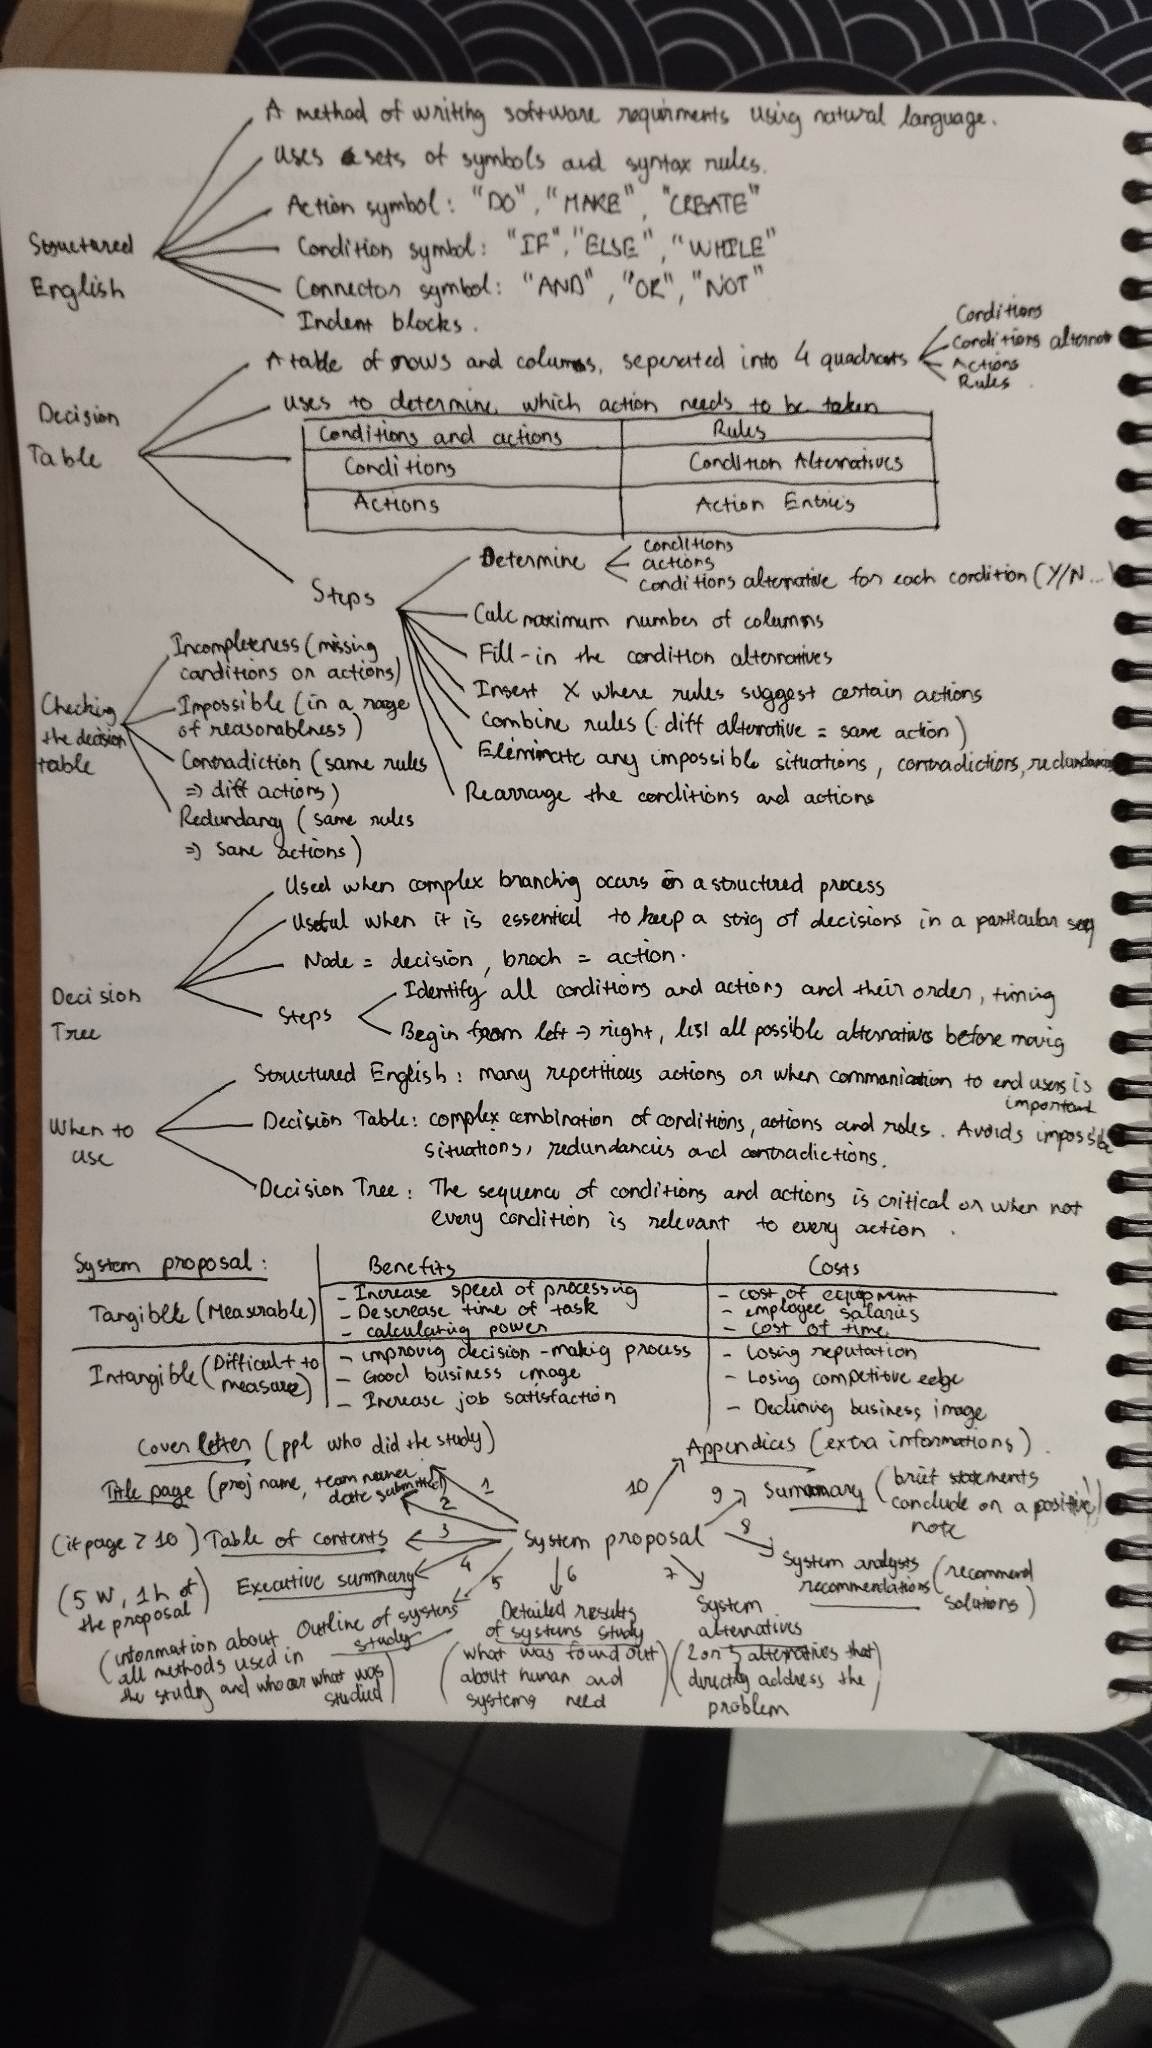 A method of writing software requirments using natural language.
Uses sets of symbols and syntax rules.
Action symbol: "DO", "MAKE", "CREATE"
Structured
English
Condition symbol: "IF", "ELSE", "WHILE"
Connector symbol: "AND", "OR", "NOT"
Indent blocks.
A table of rows and columns, seperated into 4 quadrants
Conditions
Conditions alternat
Actions
Rules
Decision
Table
Uses to determine which action needs to be taken
Conditions and actions Rules
Conditions Condition Alternatives
Actions Action Entries
Steps
Determine
conditions
actions
conditions alternative for each condition (Y/N...)
Calc maximum number of columns
Fill-in the condition alternatives
Insert X where rules suggest certain actions
Combine rules (diff alternative = same action)
Eliminate any impossible situations, contradictions, redundancies
Rearrange the conditions and actions
Checking
the decision
table
Incompleteness (missing
conditions or actions)
Impossible (in a rage
of reasonablness)
Contradiction (same rules
=> diff actions)
Redundancy (same rules
=> same actions)
Decision
Tree
Used when complex branching occurs in a structured process
Useful when it is essential to keep a strig of decisions in a particular seq
Node = decision, brach = action.
Steps
Identify all conditions and actions and their order, timing
Begin from left → right, list all possible alternatives before movig
When to
use
Structured English: many repetitious actions or when communication to end users is
important
Decision Table: complex combination of conditions, actions and rules. Avoids impossible
situations, redundancies and contradictions.
Decision Tree: The sequence of conditions and actions is critical or when not
every condition is relevant to every action.
System proposal: Benefits Costs
Tangible (Measurable)
- Increase speed of processing
- Descrease time of task
- calculating power
- cost of equipment
- employee salaries
- Cost of time
Intangible (Difficult to
measure)
- improvig decision-making process
- Good business image
- Increase job satisfaction
- Losing reputation
- Losing competitive edge
- Declining business image
System proposal
1
Cover letter (ppl who did the study)
2
Title page (proj name, team name,
date submitted)
3
(if page ≥ 10) Table of contents
4
Executive summary
(5 W, 1h of
the proposal
5
Outline of systems
study
(information about
all methods used in
the study and who or what was
studied)
6
Detailed results
of systems study
(what was found out
about human and
systems need)
7
System
alternatives
(2 or 3 alternatives that
directly address the
problem)
8
System analysts
recommendations (recommend
solutions)
9
Summary (brief statements
conclude on a positive
note)
10
Appendices (extra informations).